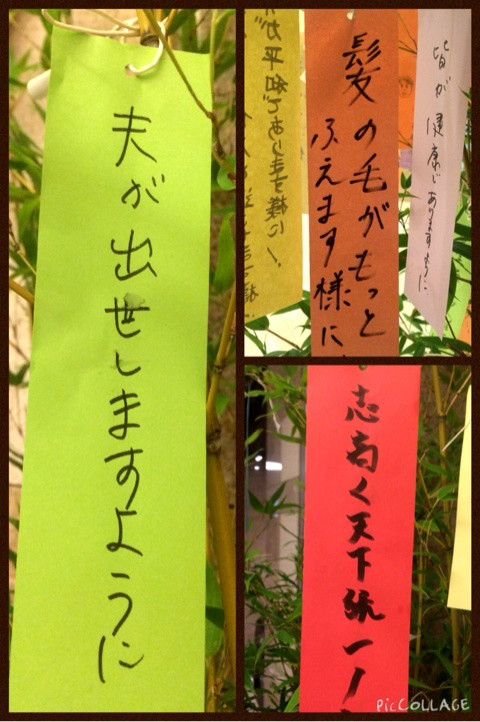 夫が出世しますように
髪の毛がもっと
ふえます様に
皆が健康でありますように
が平和であります様に!
志高く天下統一!
PicCOLLAGE